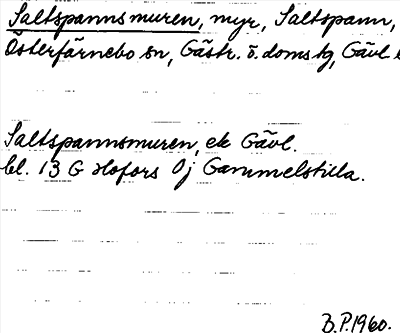 Saltspannsmuren, myr, Saltspann,
Österfärnebo sn, Gästr. ö. doms tg, Gävl
Saltspannsmuren, ek Gävl.
bl. 13 G Hofors 0j Gammelstilla.
B.P. 1960.